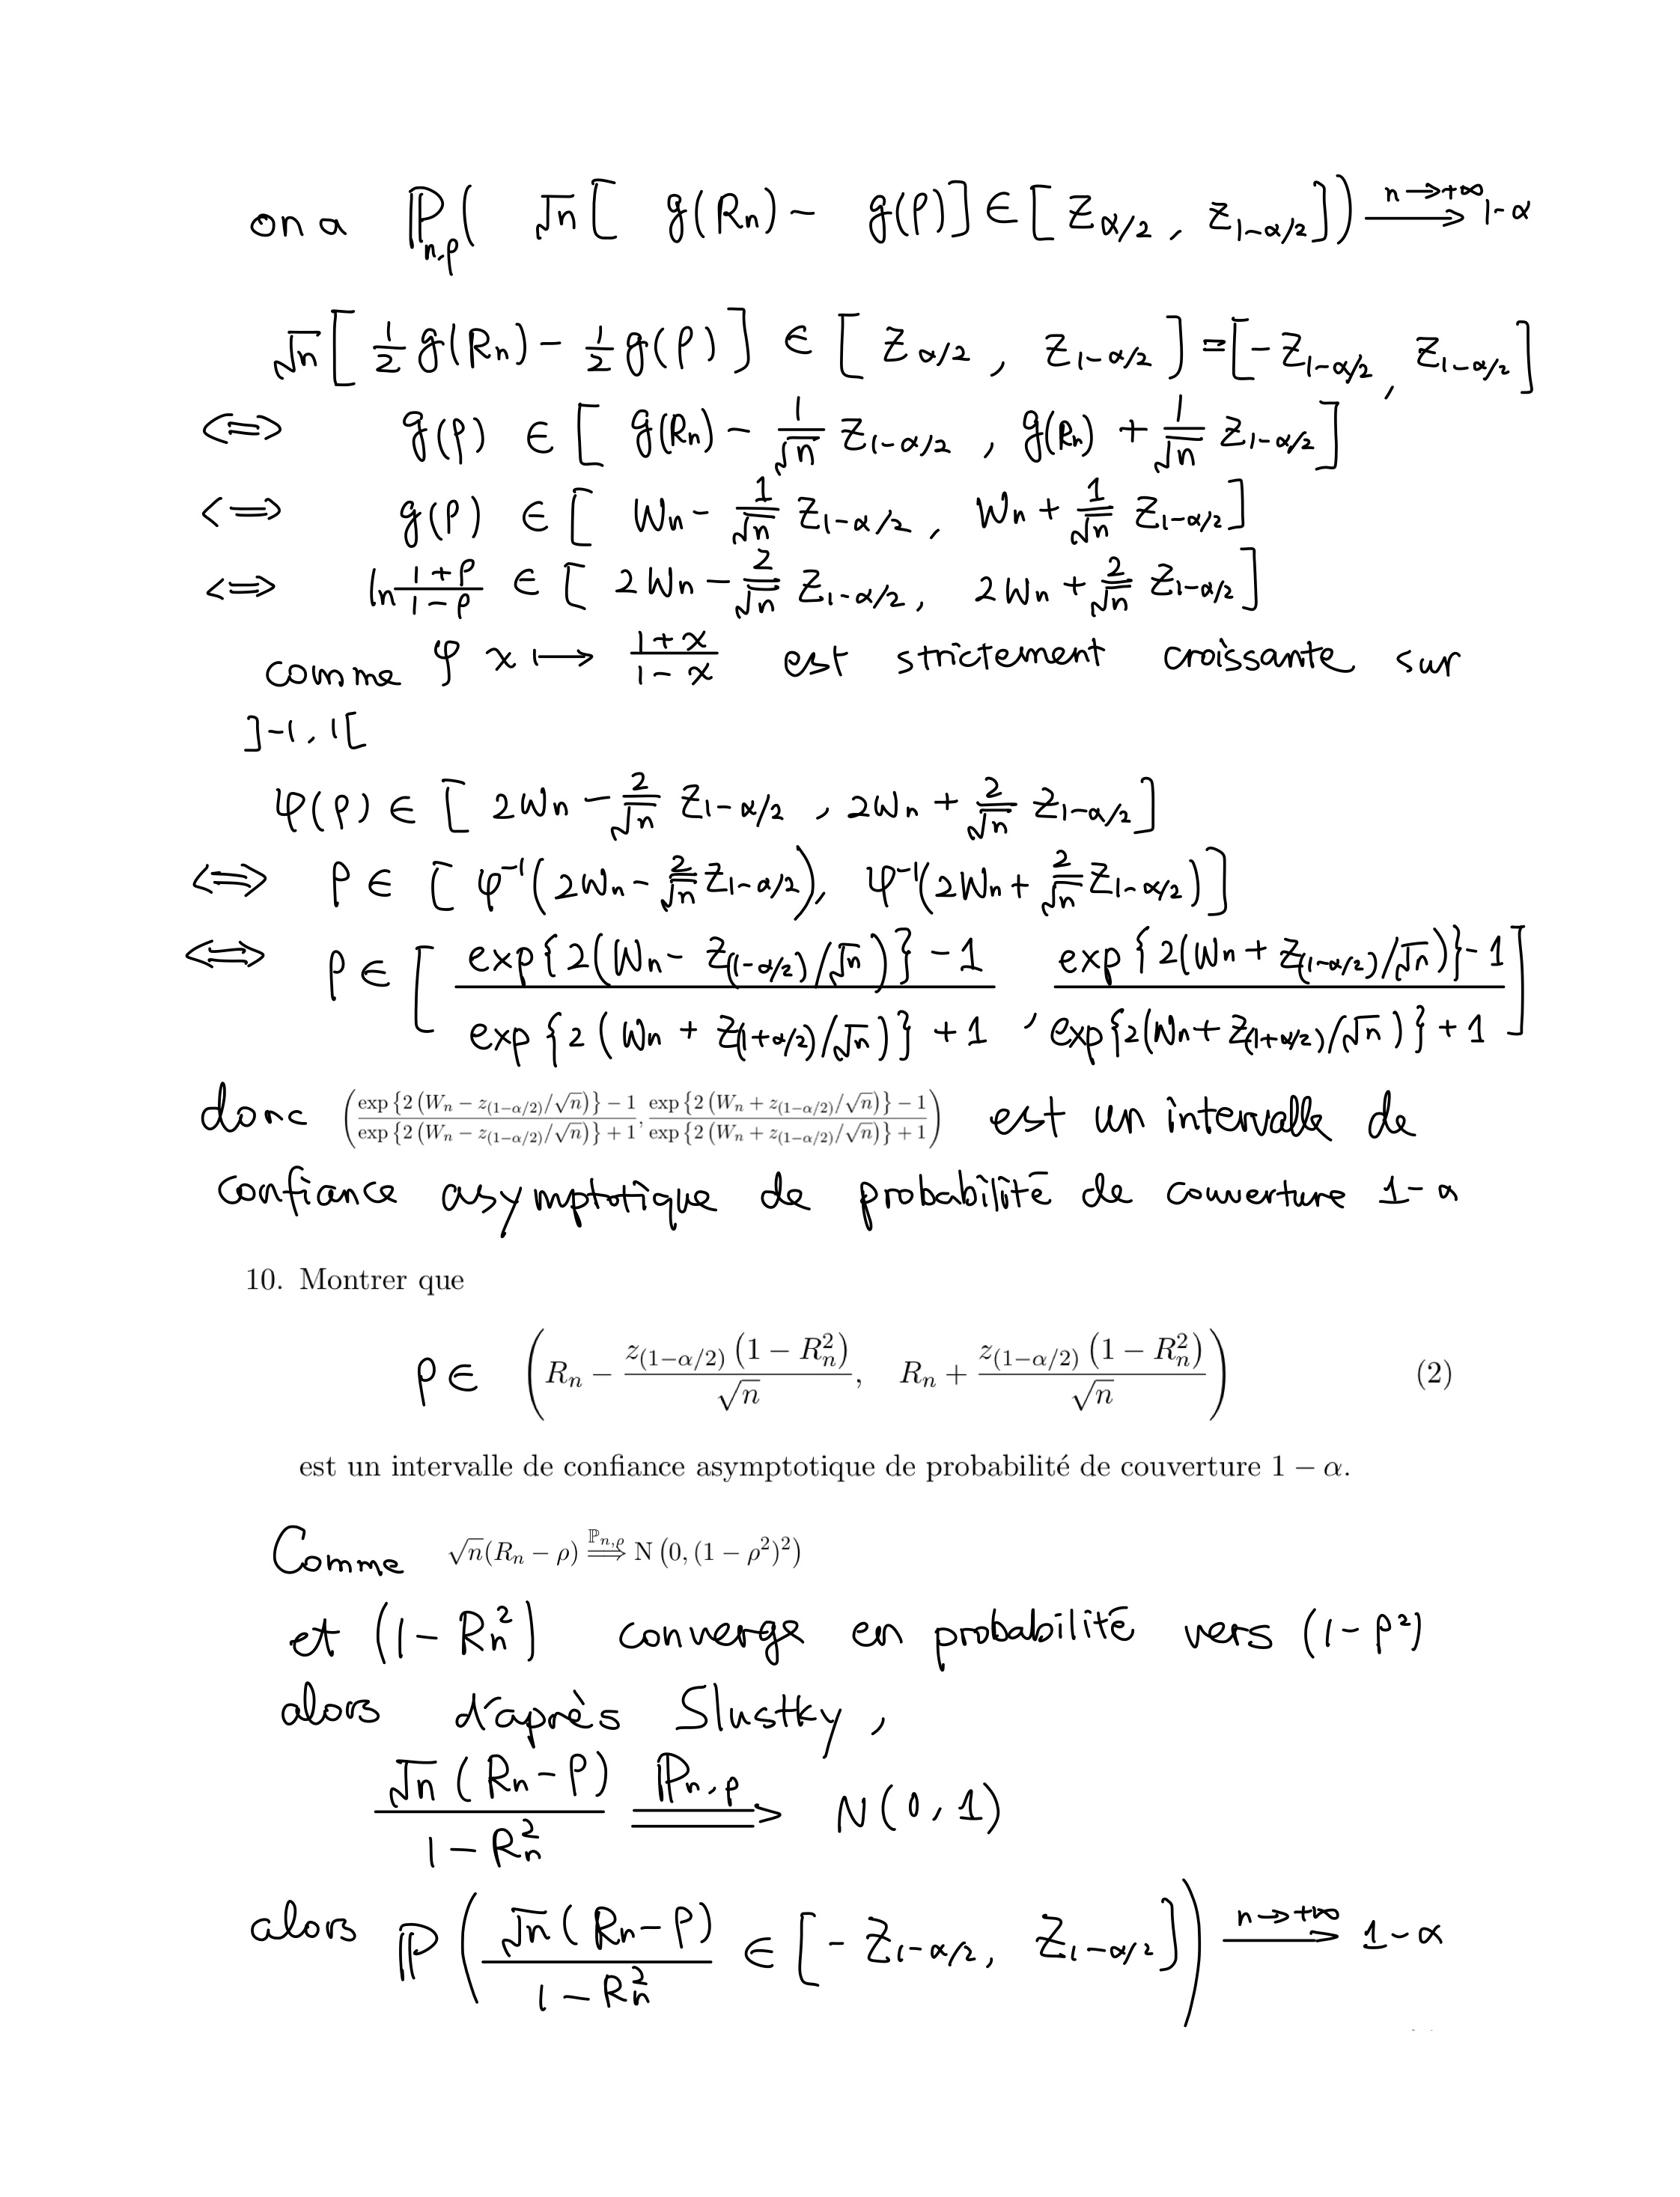 on a ℙ_{n,ρ}( √n [ g(Rn) − g(ρ)] ∈ [ Z_{α/2} , Z_{1-α/2}]) \xrightarrow{n→+∞} 1-α
√n [ 1/2 g(Rn) − 1/2 g(ρ) ] ∈ [ Z_{α/2} , Z_{1-α/2} ] = [−Z_{1-α/2} , Z_{1-α/2}]
⟺ g(ρ) ∈ [ g(Rn) − 1/√n Z_{1-α/2} , g(Rn) + 1/√n Z_{1-α/2} ]
⟺ g(ρ) ∈ [ Wn − 1/√n Z_{1-α/2} , Wn + 1/√n Z_{1-α/2} ]
⟺ ln (1+ρ)/(1−ρ) ∈ [ 2Wn − 2/√n Z_{1-α/2} , 2Wn + 2/√n Z_{1-α/2} ]
comme φ x ⟼ (1+x)/(1−x) est strictement croissante sur
]-1, 1[
φ(ρ) ∈ [ 2Wn − 2/√n Z_{1-α/2} , 2Wn + 2/√n Z_{1-α/2} ]
⟺ ρ ∈ [ φ⁻¹(2Wn − 2/√n Z_{1-α/2}), φ⁻¹(2Wn + 2/√n Z_{1-α/2}) ]
⟺ ρ ∈ [ (exp{2(Wn − Z_{(1-α/2)}/√n)} − 1)/(exp{2(Wn + Z_{(1+α/2)}/√n)} + 1) , (exp{2(Wn + Z_{(1-α/2)}/√n)} − 1)/(exp{2(Wn + Z_{(1+α/2)}/√n)} + 1) ]
donc ( (exp{2(W_n − z_{(1−α/2)}/√n)} − 1)/(exp{2(W_n − z_{(1−α/2)}/√n)} + 1) , (exp{2(W_n + z_{(1−α/2)}/√n)} − 1)/(exp{2(W_n + z_{(1−α/2)}/√n)} + 1) ) est un intervalle de
confiance asymptotique de probabilité de couverture 1-α
10. Montrer que
ρ ∈ ( R_n − z_{(1−α/2)} (1 − R_n²)/√n , R_n + z_{(1−α/2)} (1 − R_n²)/√n ) (2)
est un intervalle de confiance asymptotique de probabilité de couverture 1 − α.
Comme √n(R_n − ρ) \xRightarrow{ℙ_{n,ρ}} N (0, (1 − ρ²)²)
et (1 − Rn²) converge en probabilité vers (1-ρ²)
alors d'après Slustky,
√n (Rn−ρ)/(1 − Rn²) \xRightarrow{ℙ_{n,ρ}} N(0, 1)
alors ℙ( √n (Rn−ρ)/(1 − Rn²) ∈ [−Z_{1-α/2}, Z_{1-α/2}] ) \xrightarrow{n→+∞} 1-α